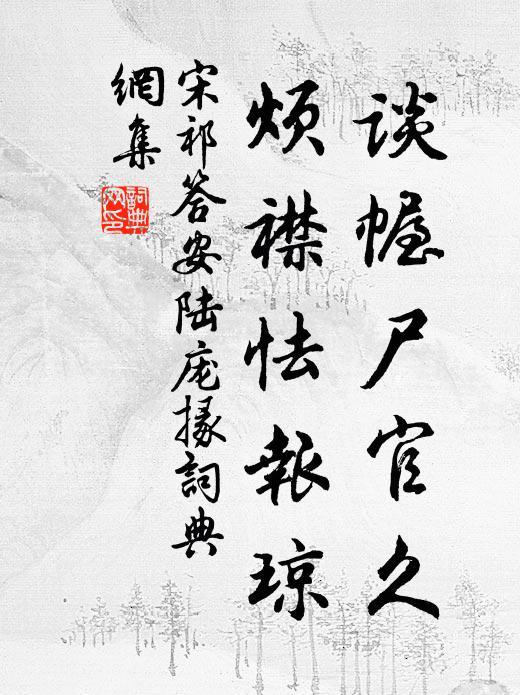 谈幄尸官久
烦襟怯報琼
宋祁答安陆庞掾詞典
網集
詞典
网印